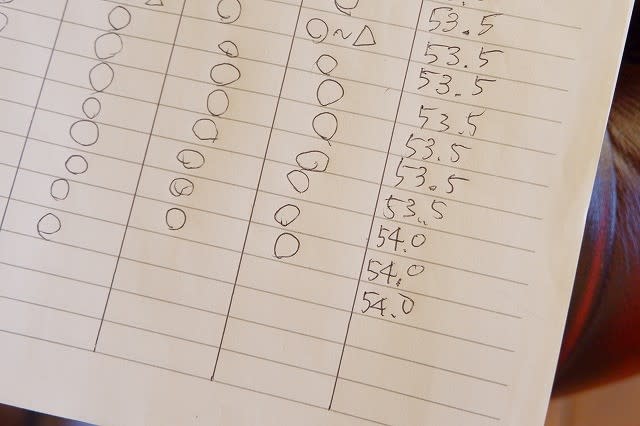 ○ 53.5
△ ○ ○~△ 53.5
○ ○ ○ 53.5
○ ○ ○ 53.5
○ ○ ○ 53.5
○ ○ ○ 53.5
○ ○ ○ 53.5
○ ○ ○ 54.0
○ ○ ○ 54.0
○ 54.0